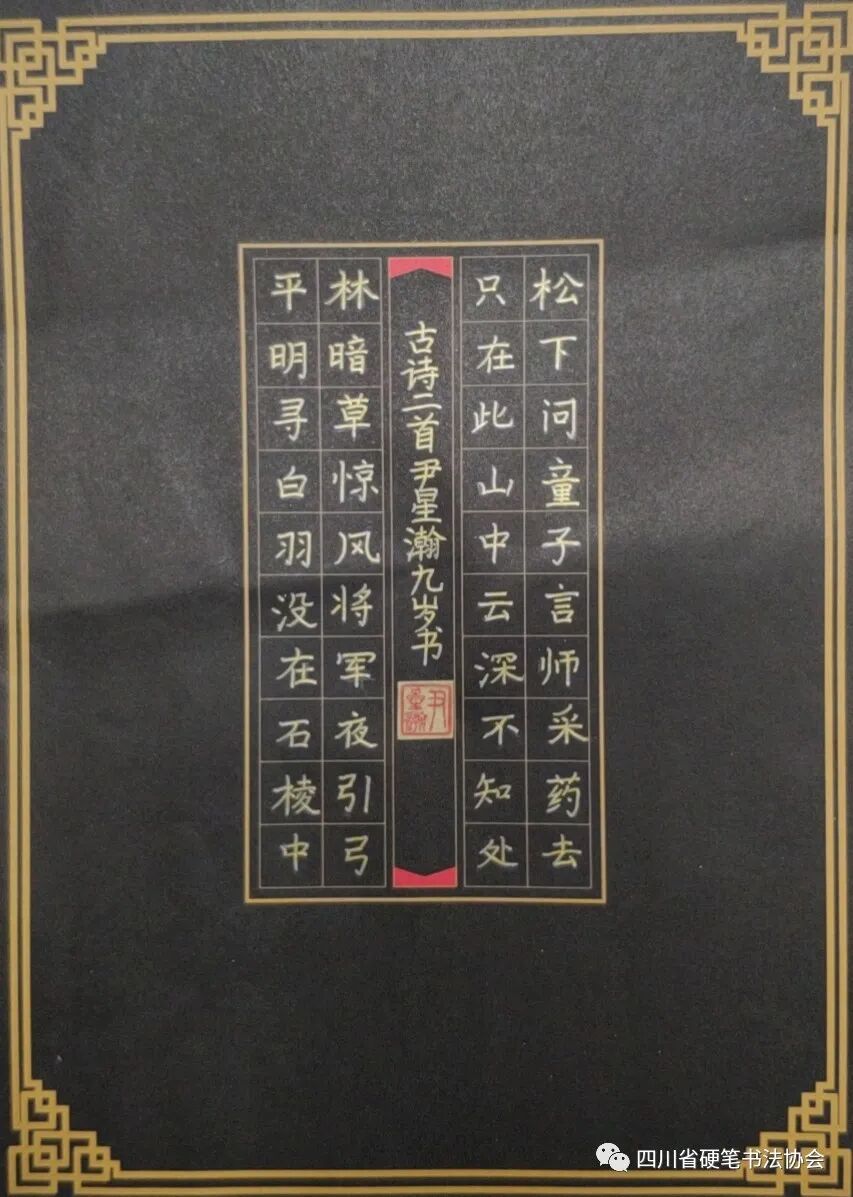 松下问童子言师采药去
只在此山中云深不知处
古诗二首尹星瀚九岁书
林暗草惊风将军夜引弓
平明寻白羽没在石棱中
四川省硬笔书法协会